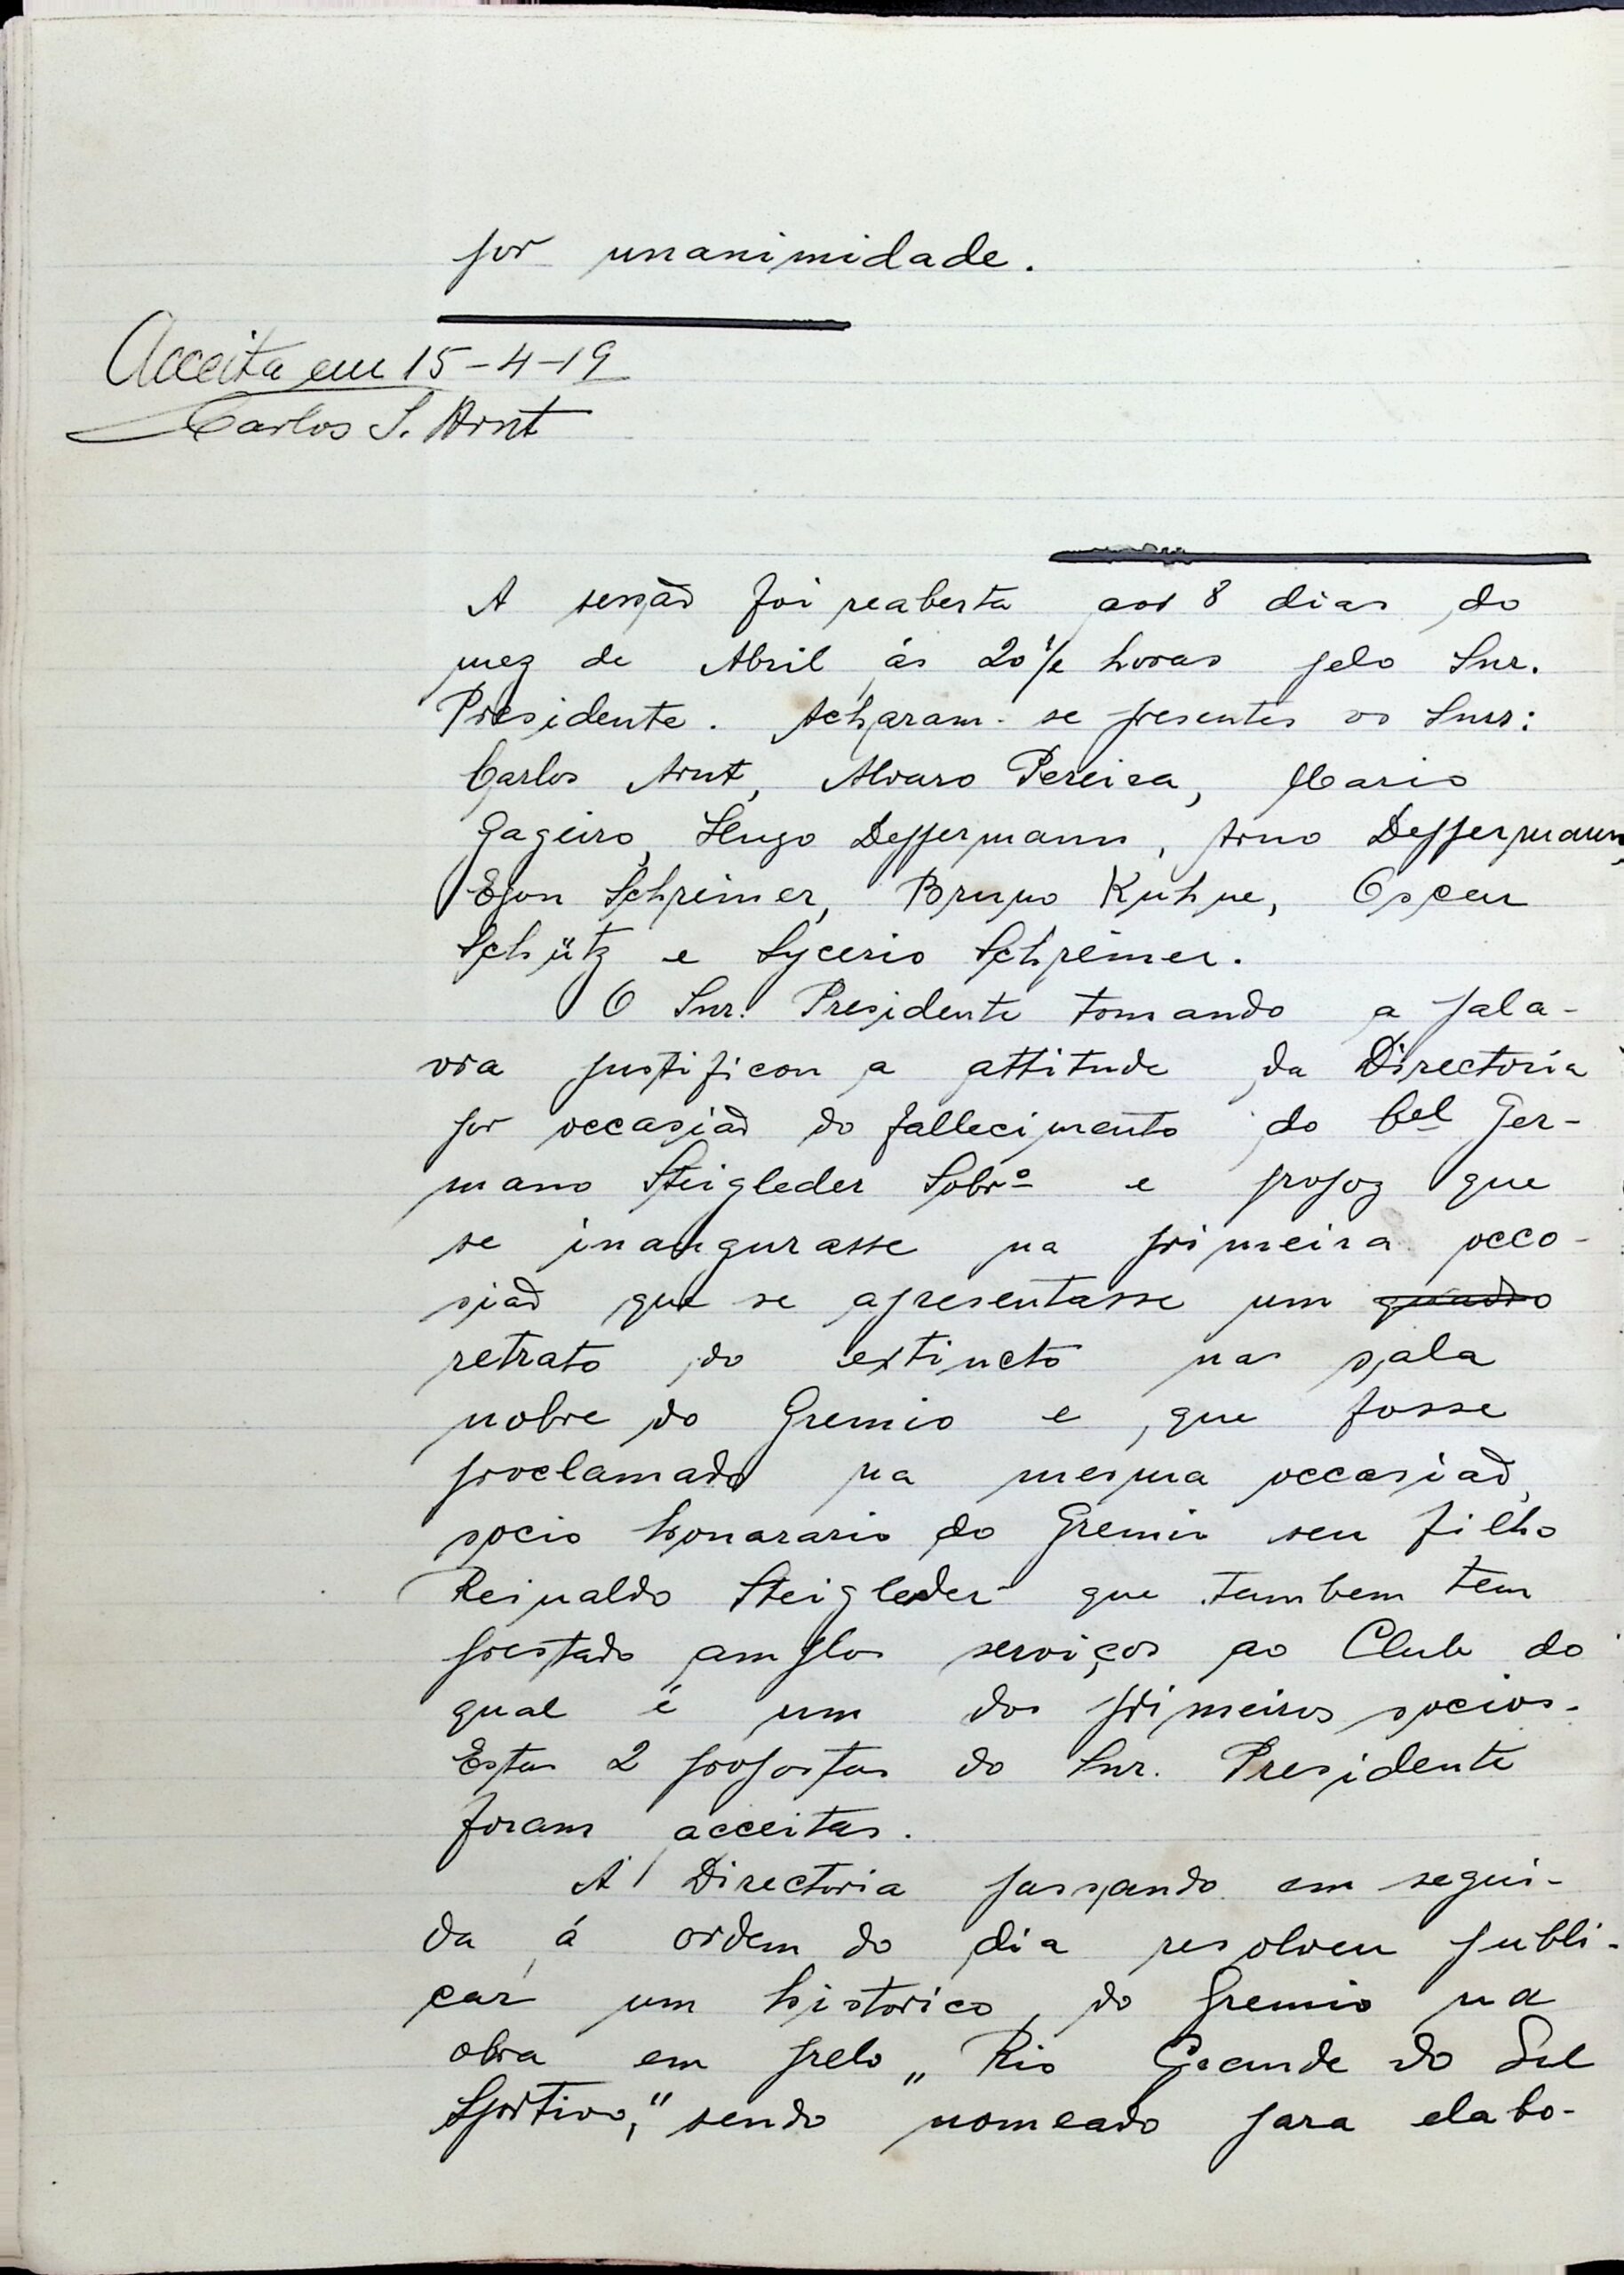 por unanimidade.
Acceita em 15-4-19
Carlos S. Arnt
A sessão foi reaberta aos 8 dias do
mez de Abril ás 20 1/2 horas pelo Snr.
Presidente. Acharam-se presentes os Snrs:
Carlos Arnt, Alvaro Pereira, Mario
Gageiro, Hugo Deppermann, Arno Deppermann,
Egon Schreiner, Bruno Kuhne, Oscar
Schütz e Lycerio Schreiner.
O Snr. Presidente tomando a pala-
vra justificou a attitude da Directoria
por occasião do fallecimento do Cel Ger-
mano Steigleder Sobrº e propoz que
se inaugurasse na primeira occa-
sião que se apresentasse um quadro
retrato do extincto nas sala
nobre do Gremio e, que fosse
proclamado na mesma occasião,
socio honarario do Gremio seu filho
Reinaldo Steigleder que tambem tem
prestado amplos serviços ao Club do
qual é um dos primeiros socios.
Estas 2 propostas do Snr. Presidente
foram acceitas.
A Directoria passando em segui-
da á ordem do dia resolveu publi-
car um historico do Gremio na
obra em prelo „Rio Grande do Sul
Sportivo," sendo nomeado para elabo-